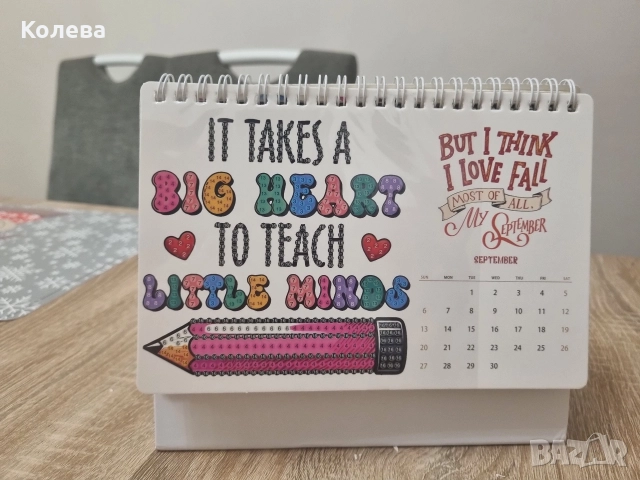 Колева
IT TAKES A
BIG HEART
TO TEACH
LITTLE MINDS
BUT I THINK
I LOVE FALL
MOST OF ALL.
My September
SEPTEMBER
SUN MON TUE WED THU FRI SAT
1 2 3 4 5
6 7 8 9 10 11 12
13 14 15 16 17 18 19
20 21 22 23 24 25 26
27 28 29 30
BAZAR